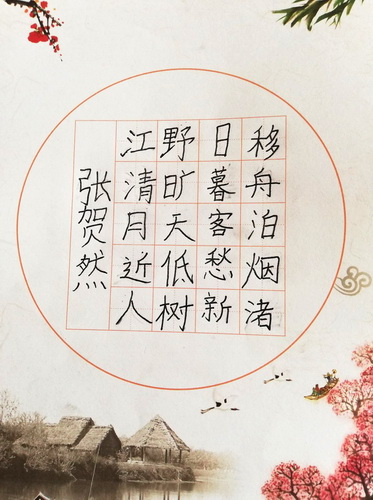 移舟泊烟渚
日暮客愁新
野旷天低树
江清月近人
张贺然